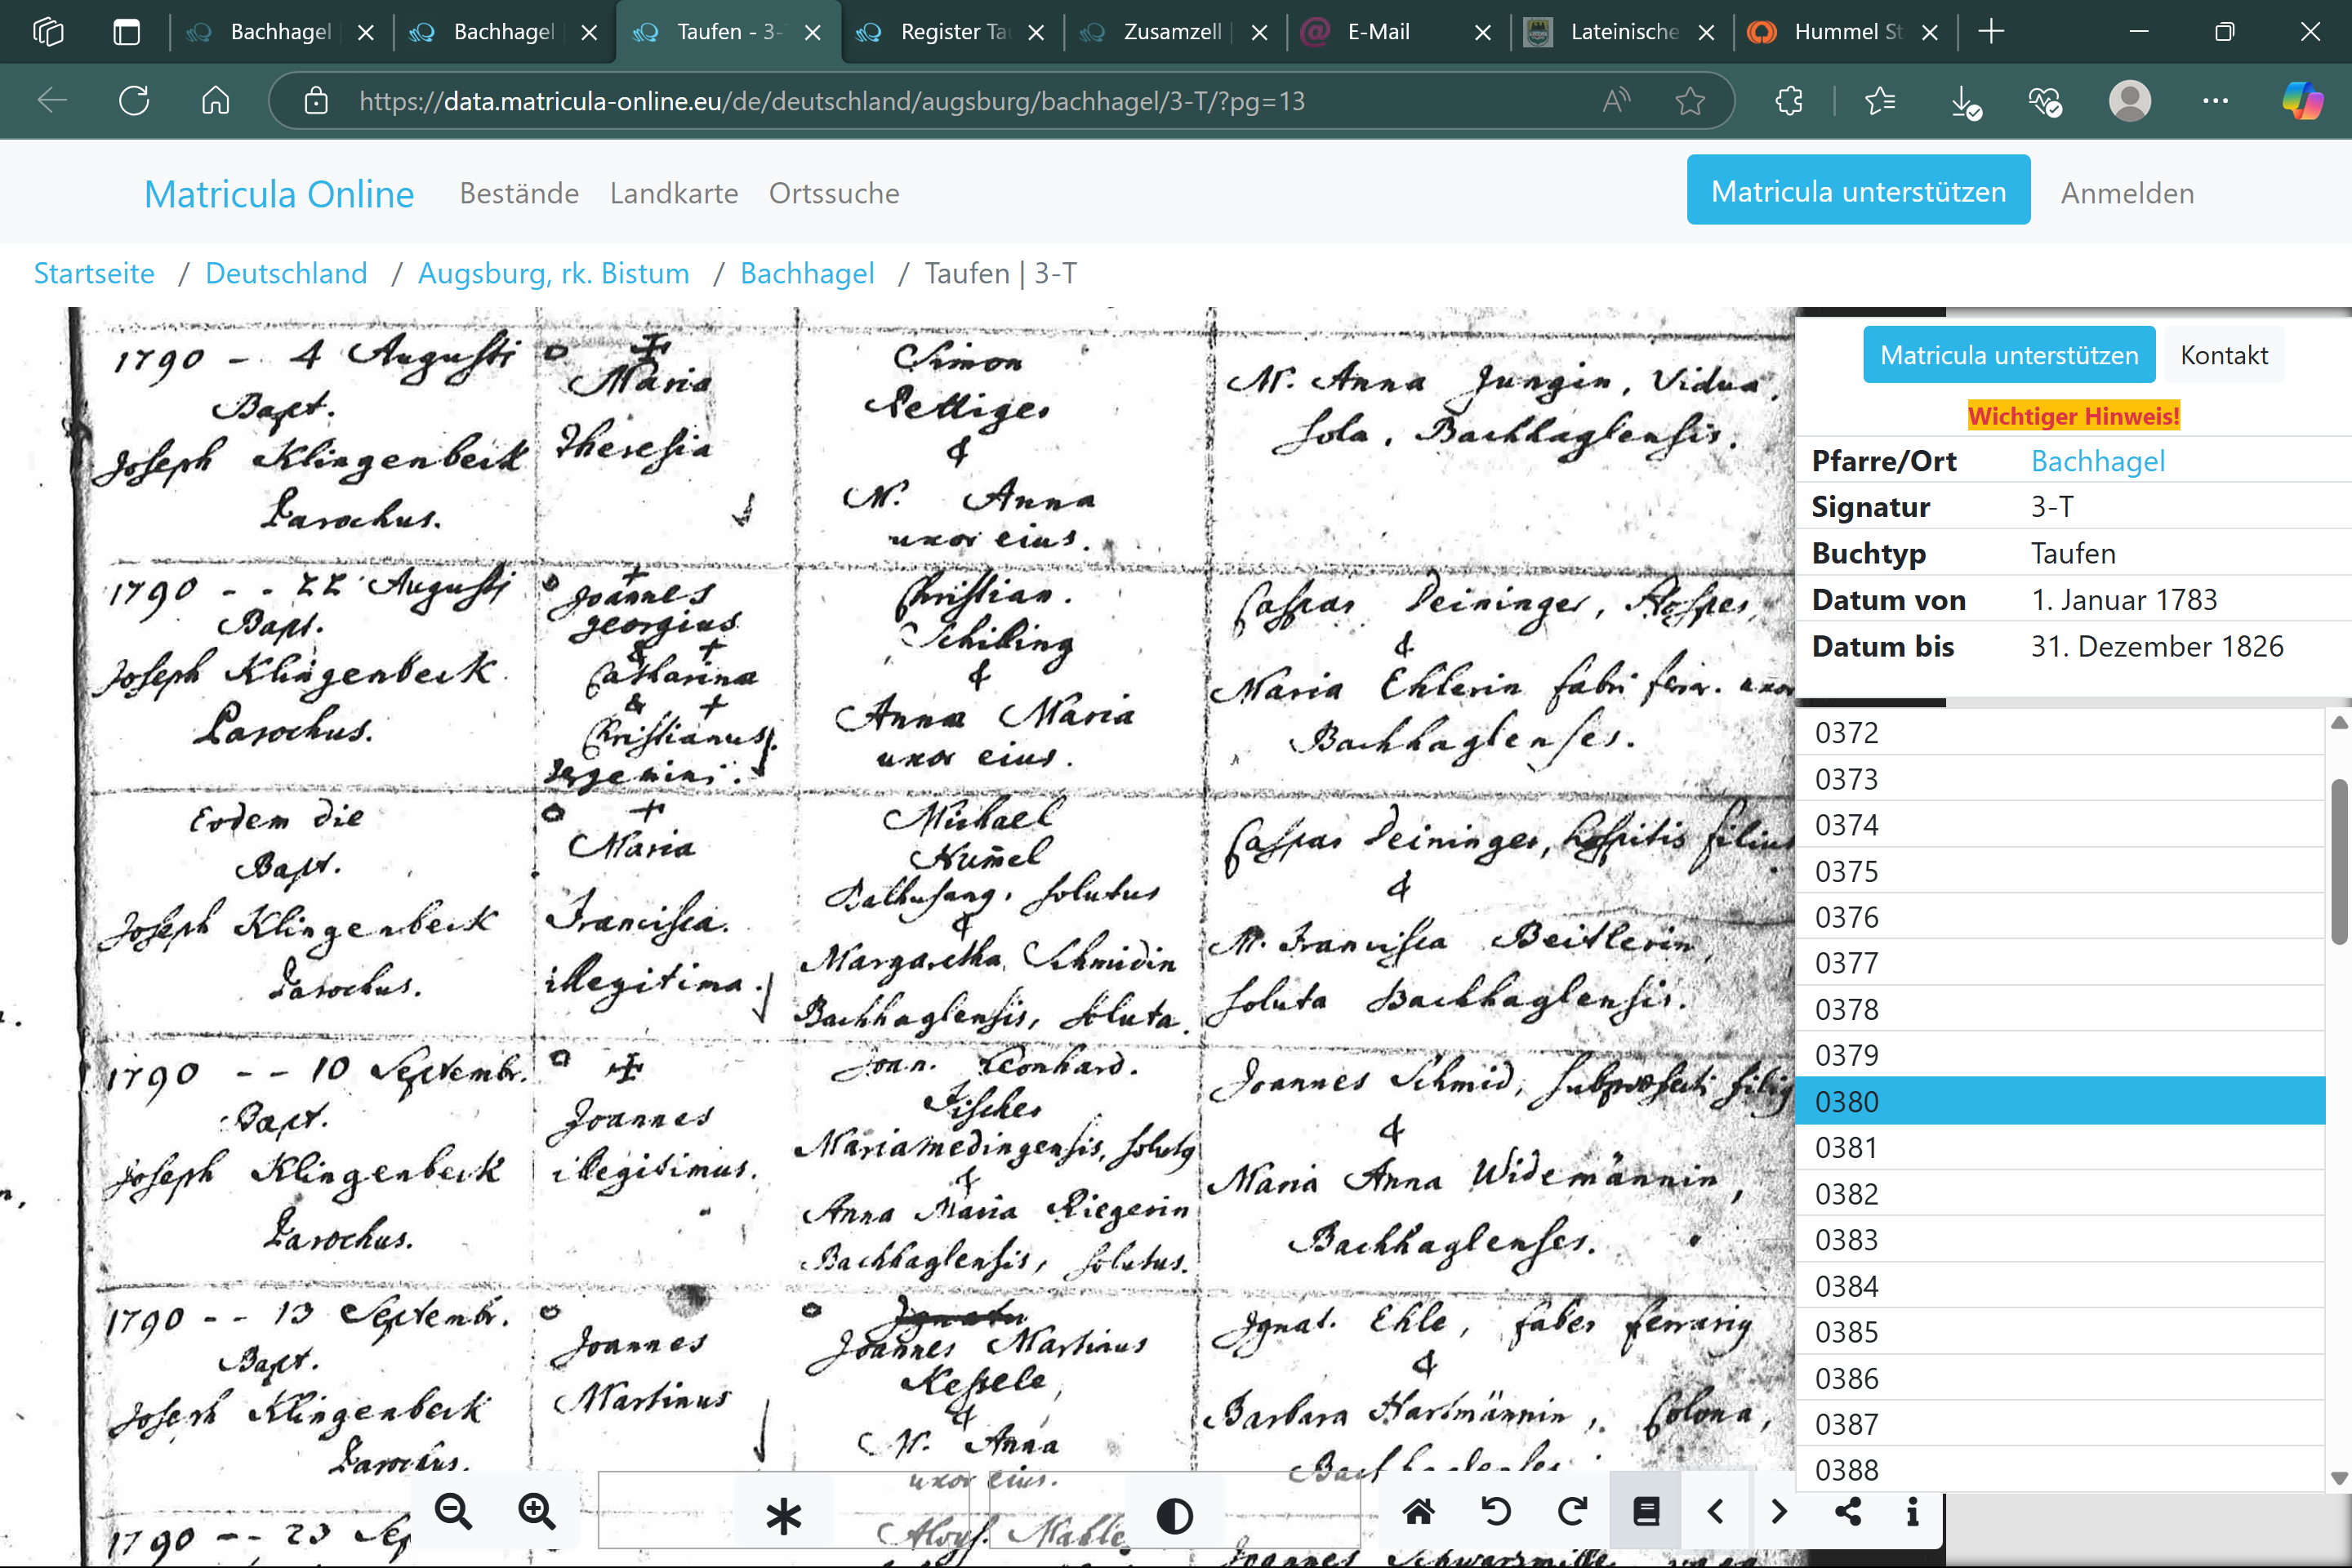 Bachhagel
Bachhagel
Taufen - 3-
Register Ta
Zusamzell
E-Mail
Lateinische
Hummel St
https://data.matricula-online.eu/de/deutschland/augsburg/bachhagel/3-T/?pg=13
Matricula Online
Bestände
Landkarte
Ortssuche
Matricula unterstützen
Anmelden
Startseite / Deutschland / Augsburg, rk. Bistum / Bachhagel / Taufen | 3-T
1790 - . 4 Augusti
Bapt.
Joseph Klingenbeck
Parochus.
Maria
Theresia
Simon
Rettiger
&
M. Anna
uxor eius.
M. Anna Jungin, Vidua,
sola, Bachhaglensis.
1790 - - 22 Augusti
Bapt.
Joseph Klingenbeck
Parochus.
Joannes
georgius
&
Catharina
&
Christianus
tergemini.
Christian.
Schilling
&
Anna Maria
uxor eius.
Caspar Deininger, Hospes,
&
Maria Ehlerin fabri ferar. uxor
Bachhaglenses.
Eodem die
Bapt.
Joseph Klingenbeck
Parochus.
Maria
Francisca.
illegitima.
Michael
Hum̄el
solutus
&
Margaretha Schmidin
Bachhaglensis, soluta.
Caspar Deininger, hospitis filius
&
M. Francisca Beitlerin,
soluta Bachhaglensis.
1790 - - 10 Septembr.
Bapt.
Joseph Klingenbeck
Parochus.
Joannes
illegitimus.
Joan. Leonhard.
Fischer
Mariamedingensis, solutus
&
Anna Maria Riegerin
Bachhaglensis, solutus.
Joannes Schmid, subpraefecti filius
&
Maria Anna Widemännin,
Bachhaglenses.
1790 - - 13 Septembr.
Bapt.
Joseph Klingenbeck
Parochus.
Joannes
Martinus
Joannes Martinus
Kessele,
&
M. Anna
uxor eius.
Ignat. Ehle, faber ferrarius
&
Barbara Hartmännin, Colona,
1790 - - 23 Sep
Aloys.
Joannes
Matricula unterstützen
Kontakt
Wichtiger Hinweis!
Pfarre/Ort Bachhagel
Signatur 3-T
Buchtyp Taufen
Datum von 1. Januar 1783
Datum bis 31. Dezember 1826
0372
0373
0374
0375
0376
0377
0378
0379
0380
0381
0382
0383
0384
0385
0386
0387
0388